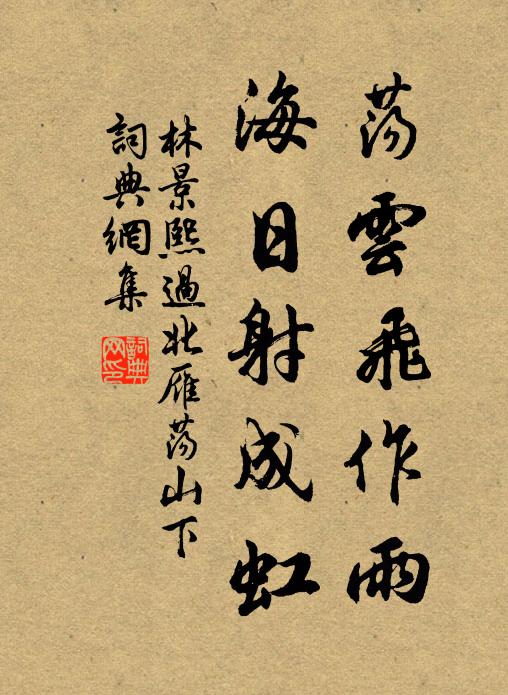 荡雲飛作雨
海日射成虹
林景熙過北雁荡山下
詞典網集
詞典
网印